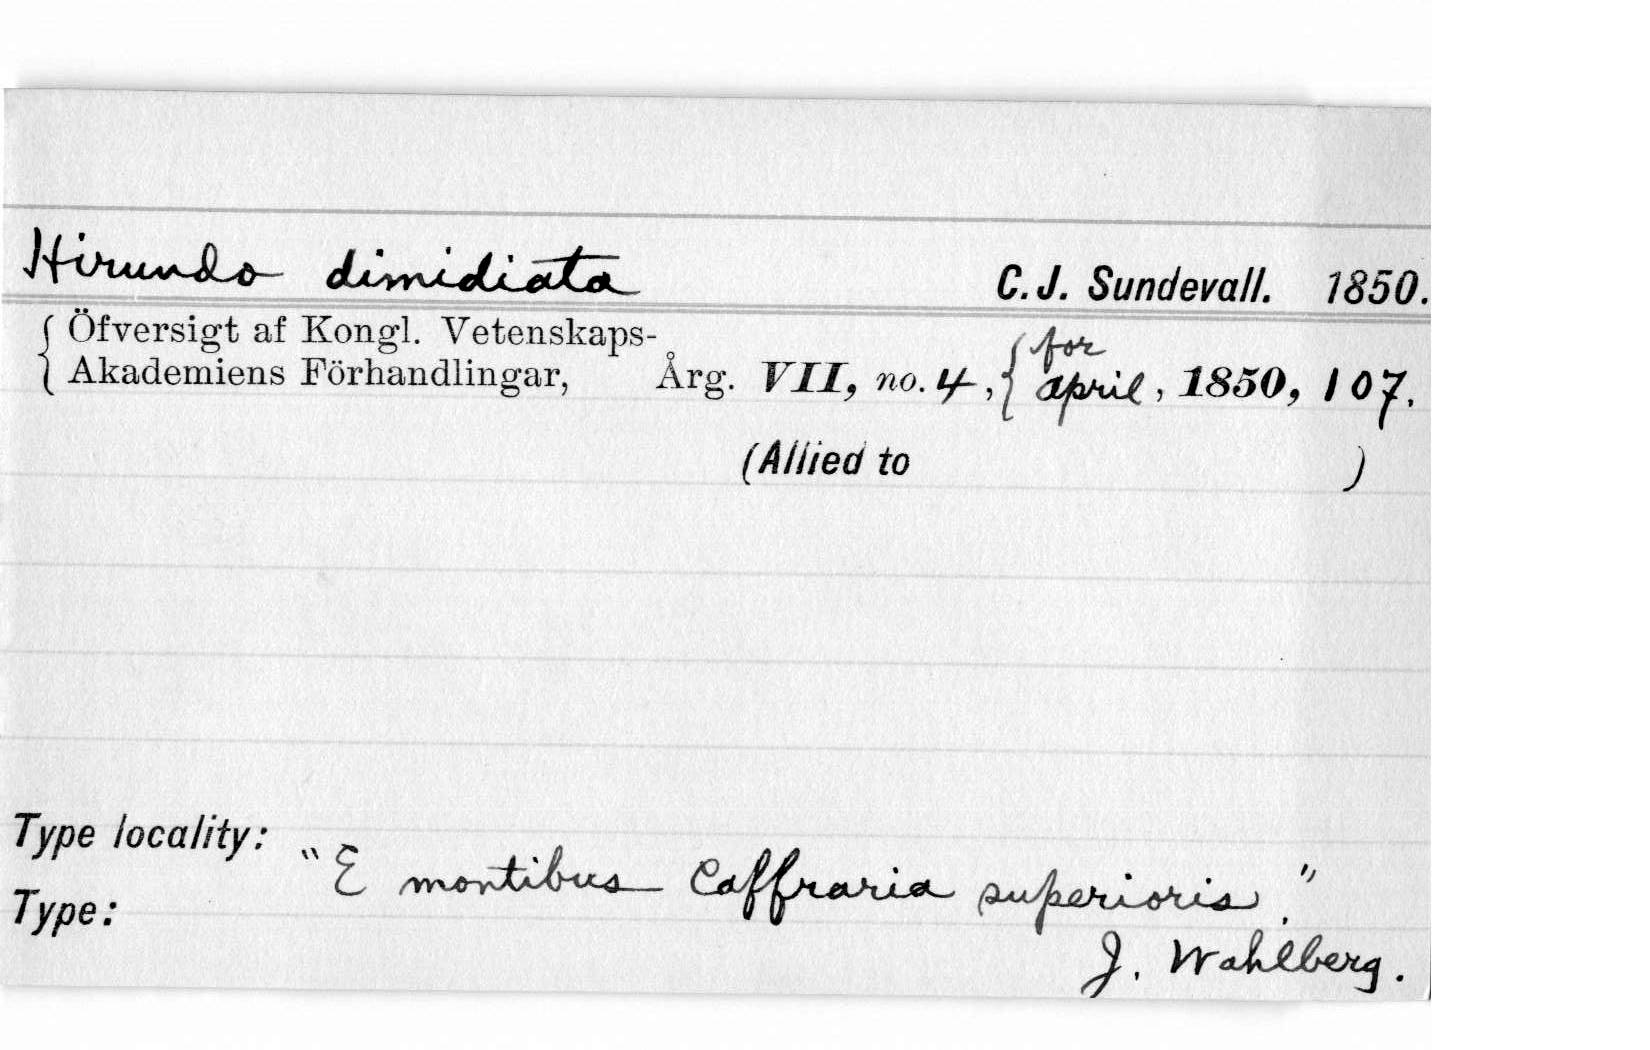 Hirundo dimidiata C. J. Sundevall. 1850.
{ Öfversigt af Kongl. Vetenskaps-
Akademiens Förhandlingar, Årg. VII, no. 4, { for april, 1850, 107.
(Allied to )
Type locality: "E montibus Caffraria superioris."
Type:
J. Wahlberg.